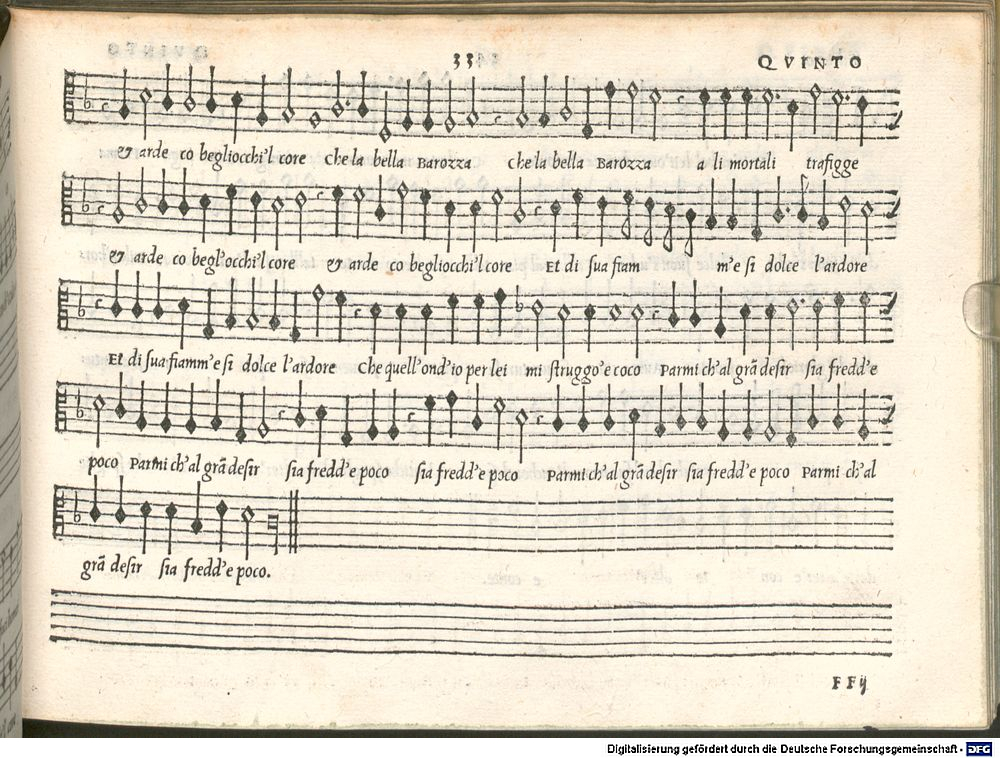 33
QVINTO
& arde co begliocchi'l core che la bella Barozza che la bella Barozza a li mortali trafigge
& arde co begl'occhi'l core & arde co begliocchi'l core Et di sua fiam m'e si dolce l'ardore
Et di sua fiamm'e si dolce l'ardore Che quell'ond'io per lei mi struggo'e coco Parmi ch'al grã desir sia fredd'e
poco Parmi ch'al grã desir sia fredd'e poco sia fredd'e poco Parmi ch'al grã desir sia fredd'e poco Parmi ch'al
grã desir sia fredd'e poco.
FFij
Digitalisierung gefördert durch die Deutsche Forschungsgemeinschaft - DFG